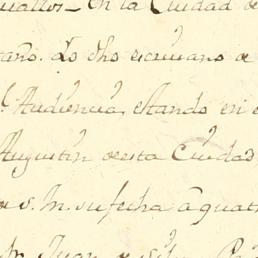 uallos_ En la Ciudad de
año. Yo dho escriuano de
l Audiencia, estando en e
Augustin desta Ciudad
s. M. su fecha a quat
Juan